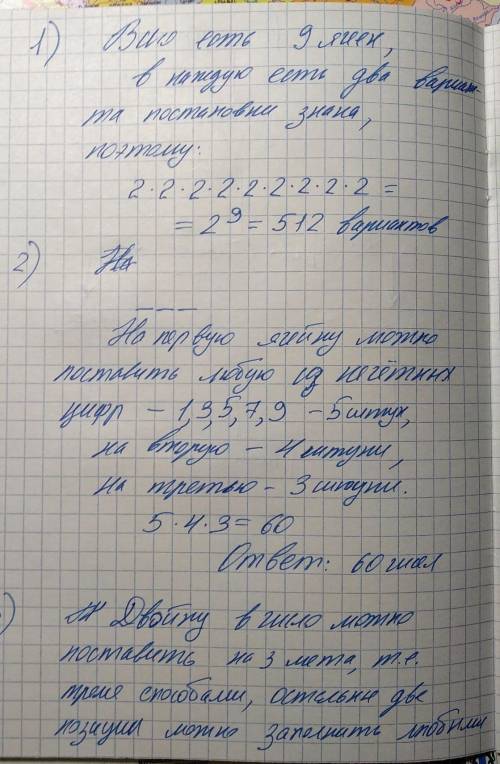 1) Всего есть 9 ячеек,
в каждую есть два вариан-
та постановки знака,
поэтому:
2·2·2·2·2·2·2·2·2 =
= 2⁹ = 512 вариантов
2) На
_ _ _
На первую ячейку можно
поставить любую из нечётных
цифр – 1, 3, 5, 7, 9 – 5 штук,
на вторую – 4 штуки,
на третью – 3 штуки.
5·4·3 = 60
Ответ: 60 чисел
) Двойку в число можно
поставить на 3 места, т.е.
тремя способами, остальные две
позиции можно заполнить любыми